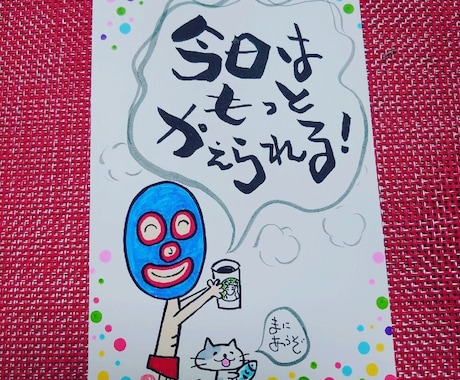 今日は
もっと
かえられる!
まに
あうぞ